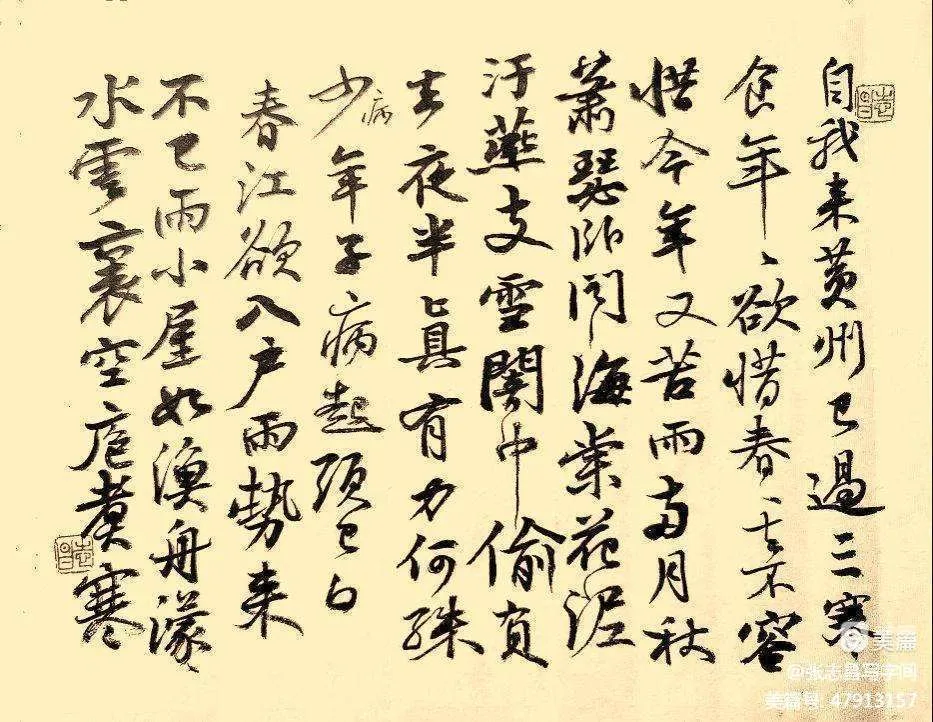 自我来黄州已過三寒
食年〻欲惜春〻去不容
惜今年又苦雨兩月秋
蕭瑟卧聞海棠花泥
汙燕支雪闇中偷負
去夜半真有力何殊
少病年子病起頭已白
春江欲入户雨勢来
不已雨小屋如漁舟濛
水雲裏空庖煮寒
志昌
志昌
美篇
@张志昌写字间
美篇号: 47913157